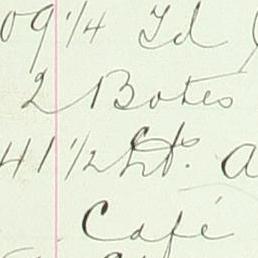 09 1/4 Id
2 Botes
41 1/2 Lt.
Café